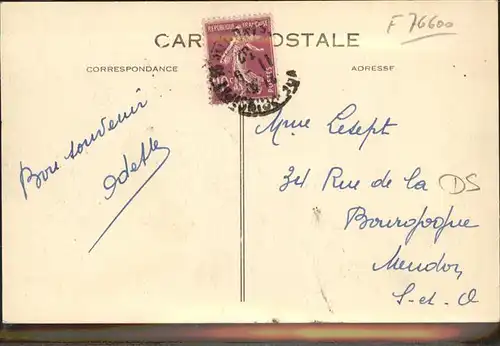 F 76600
CARTE POSTALE
REPUBLIQUE FRANCAISE
CORRESPONDANCE
ADRESSE
Bon souvenir
Odette
Mme Lesept
34 Rue de la
DS
Bourgogne
Meudon
S-et-O